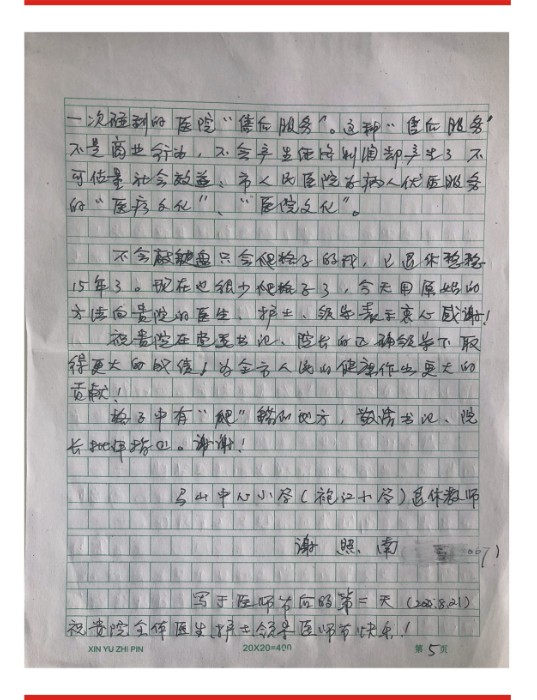 一次碰到的医院“售后服务”。这种“售后服务”
不是商业行为，不会产生任何利润却产生了不
可估量社会效益。市人民医院为病人优质服务
的“医疗文化”、“医院文化”。
不会敲键盘只会爬格子的我，已退休整整
15年了。现在也很少爬格子了，今天用原始的
方法向贵院的医生、护士、领导表示衷心感谢！
祝贵院在党委书记、院长的正确领导下取
得更大的成绩！为全市人民的健康作出更大的
贡献！
格子中有“爬”错的地方，敬请书记、院
长批评指正。谢谢！
马山中心小学（袍江小学）退休教师
谢照南
写于医师节后的第二天（8.21）
祝贵院全体医生、护士、领导医师节快乐！
XIN YU ZHI PIN
20X20=400
第5页